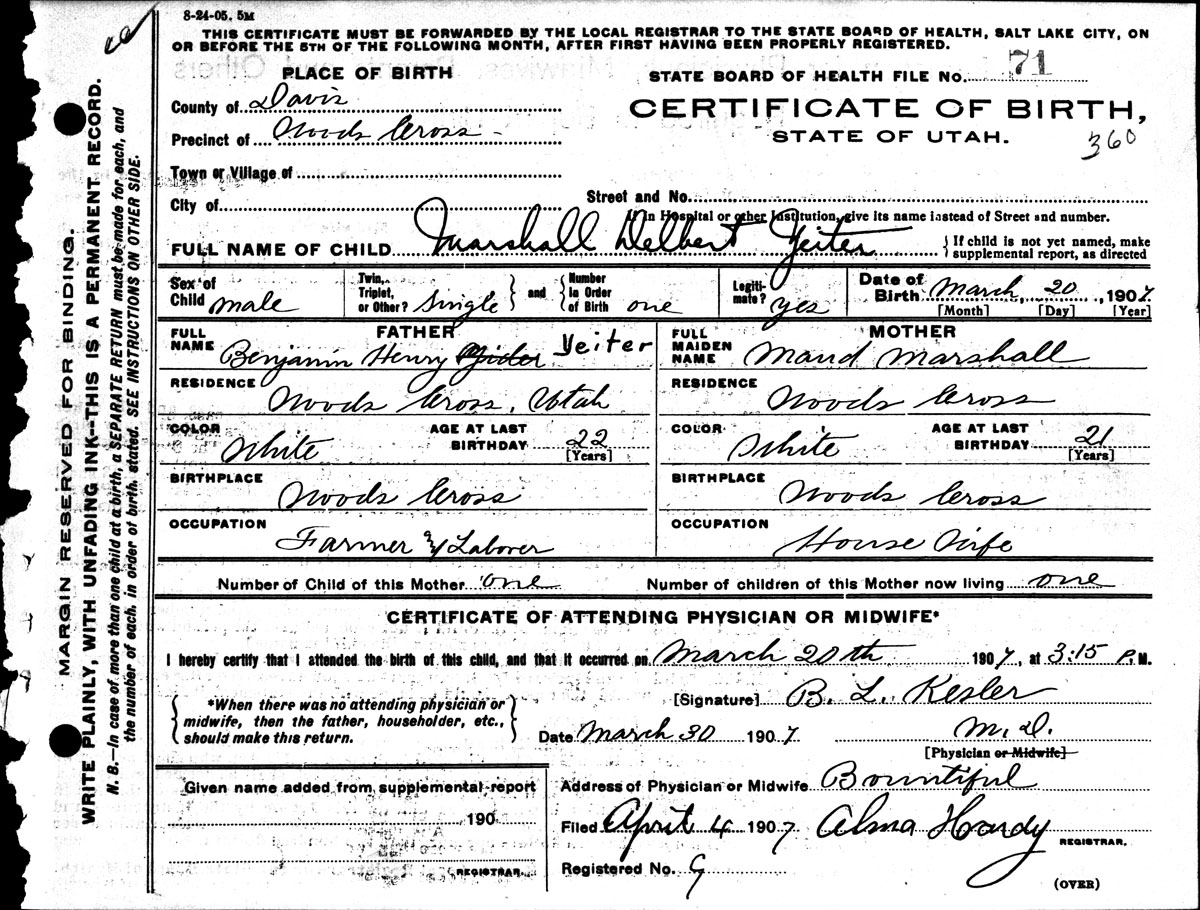 8-24-05. 5M
THIS CERTIFICATE MUST BE FORWARDED BY THE LOCAL REGISTRAR TO THE STATE BOARD OF HEALTH, SALT LAKE CITY, ON
OR BEFORE THE 5TH OF THE FOLLOWING MONTH, AFTER FIRST HAVING BEEN PROPERLY REGISTERED.
PLACE OF BIRTH
STATE BOARD OF HEALTH FILE No. 71
County of Davis
CERTIFICATE OF BIRTH,
Precinct of Woods Cross
STATE OF UTAH.
360
Town or Village of
City of
Street and No.
If in Hospital or other Institution, give its name instead of Street and number.
FULL NAME OF CHILD Marshall Delbert Yeiter
If child is not yet named, make
supplemental report, as directed
Sex of Child male
Twin, Triplet, or Other? Single
and
Number In Order of Birth one
Legitimate? yes
Date of Birth March 20, 1907
[Month] [Day] [Year]
FATHER
FULL NAME Benjamin Henry Yeiter
RESIDENCE Woods Cross, Utah
COLOR White
AGE AT LAST BIRTHDAY 22
[Years]
BIRTHPLACE Woods Cross
OCCUPATION Farmer & Laborer
MOTHER
FULL MAIDEN NAME Maud Marshall
RESIDENCE Woods Cross
COLOR White
AGE AT LAST BIRTHDAY 21
[Years]
BIRTHPLACE Woods Cross
OCCUPATION House Wife
Number of Child of this Mother one
Number of children of this Mother now living one
CERTIFICATE OF ATTENDING PHYSICIAN OR MIDWIFE*
I hereby certify that I attended the birth of this child, and that it occurred on March 20th 1907, at 3:15 P.M.
*When there was no attending physician or
midwife, then the father, householder, etc.,
should make this return.
[Signature] B. L. Kesler
Date March 30 1907
M.D.
[Physician or Midwife]
Given name added from supplemental report
190
REGISTRAR.
Address of Physician or Midwife Bountiful
Filed April 4 1907 Alma Hardy
REGISTRAR.
Registered No. 9
(OVER)
MARGIN RESERVED FOR BINDING.
WRITE PLAINLY, WITH UNFADING INK--THIS IS A PERMANENT RECORD.
N. B.—In case of more than one child at a birth, a SEPARATE RETURN must be made for each, and
the number of each, in order of birth, stated. SEE INSTRUCTIONS ON OTHER SIDE.